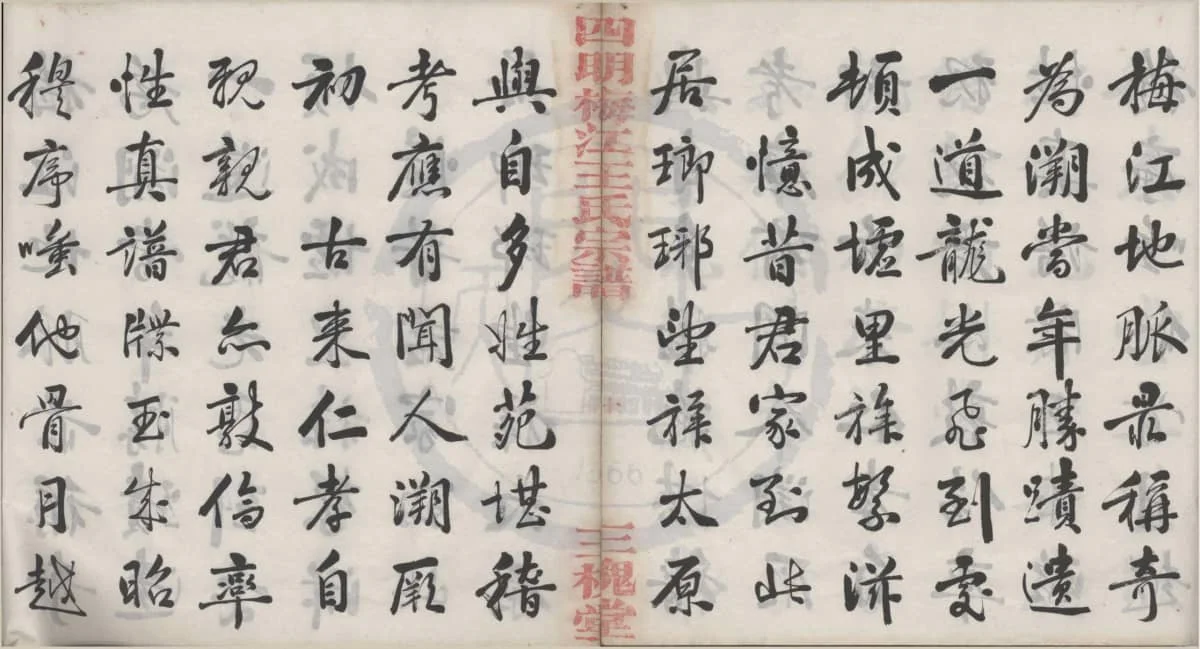 梅江地脈最稱奇
為溯當年勝蹟遺
一道龍光飛到處
頓成墟里族繁滋
憶昔君家到此
居瑯琊望族太原
四明梅江王氏宗譜
三槐堂
與自多姓苑堪稽
考應有聞人溯厥
初古來仁孝自
親親君亦敦倫率
性真譜牒玉成昭
穆序嗤他骨月越